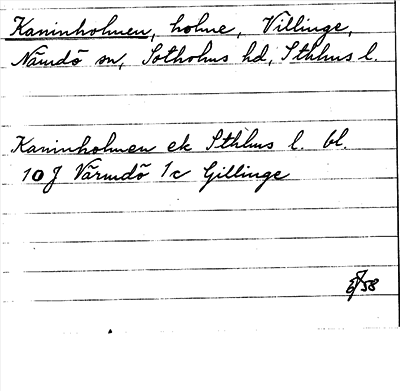 Kaninholmen, holme, Villinge,
Nämdö sn, Sotholms hd, Sthlms l.
Kaninholmen ek Sthlms l. bl.
10 J Värmdö 1c Gillinge
58